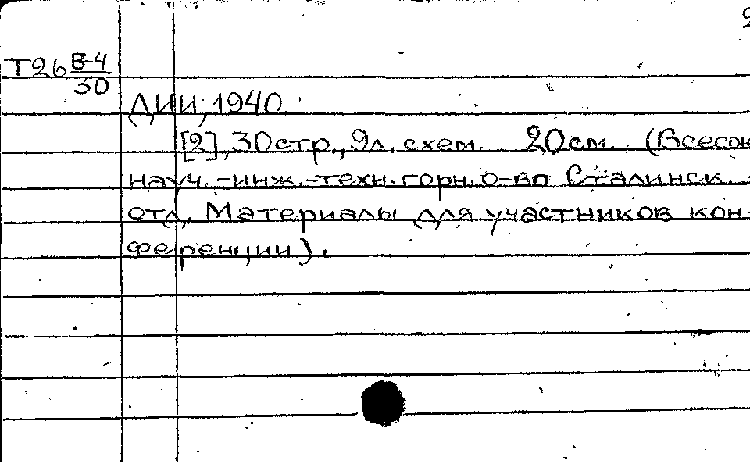 Т26 В-4
30
ДИИ, 1940.
[2], 30 стр., 9 л. схем. 20 см. (Всесою
науч.-инж.-техн. горн. о-во Сталинск.
отд. Материалы для участников кон-
ференции).